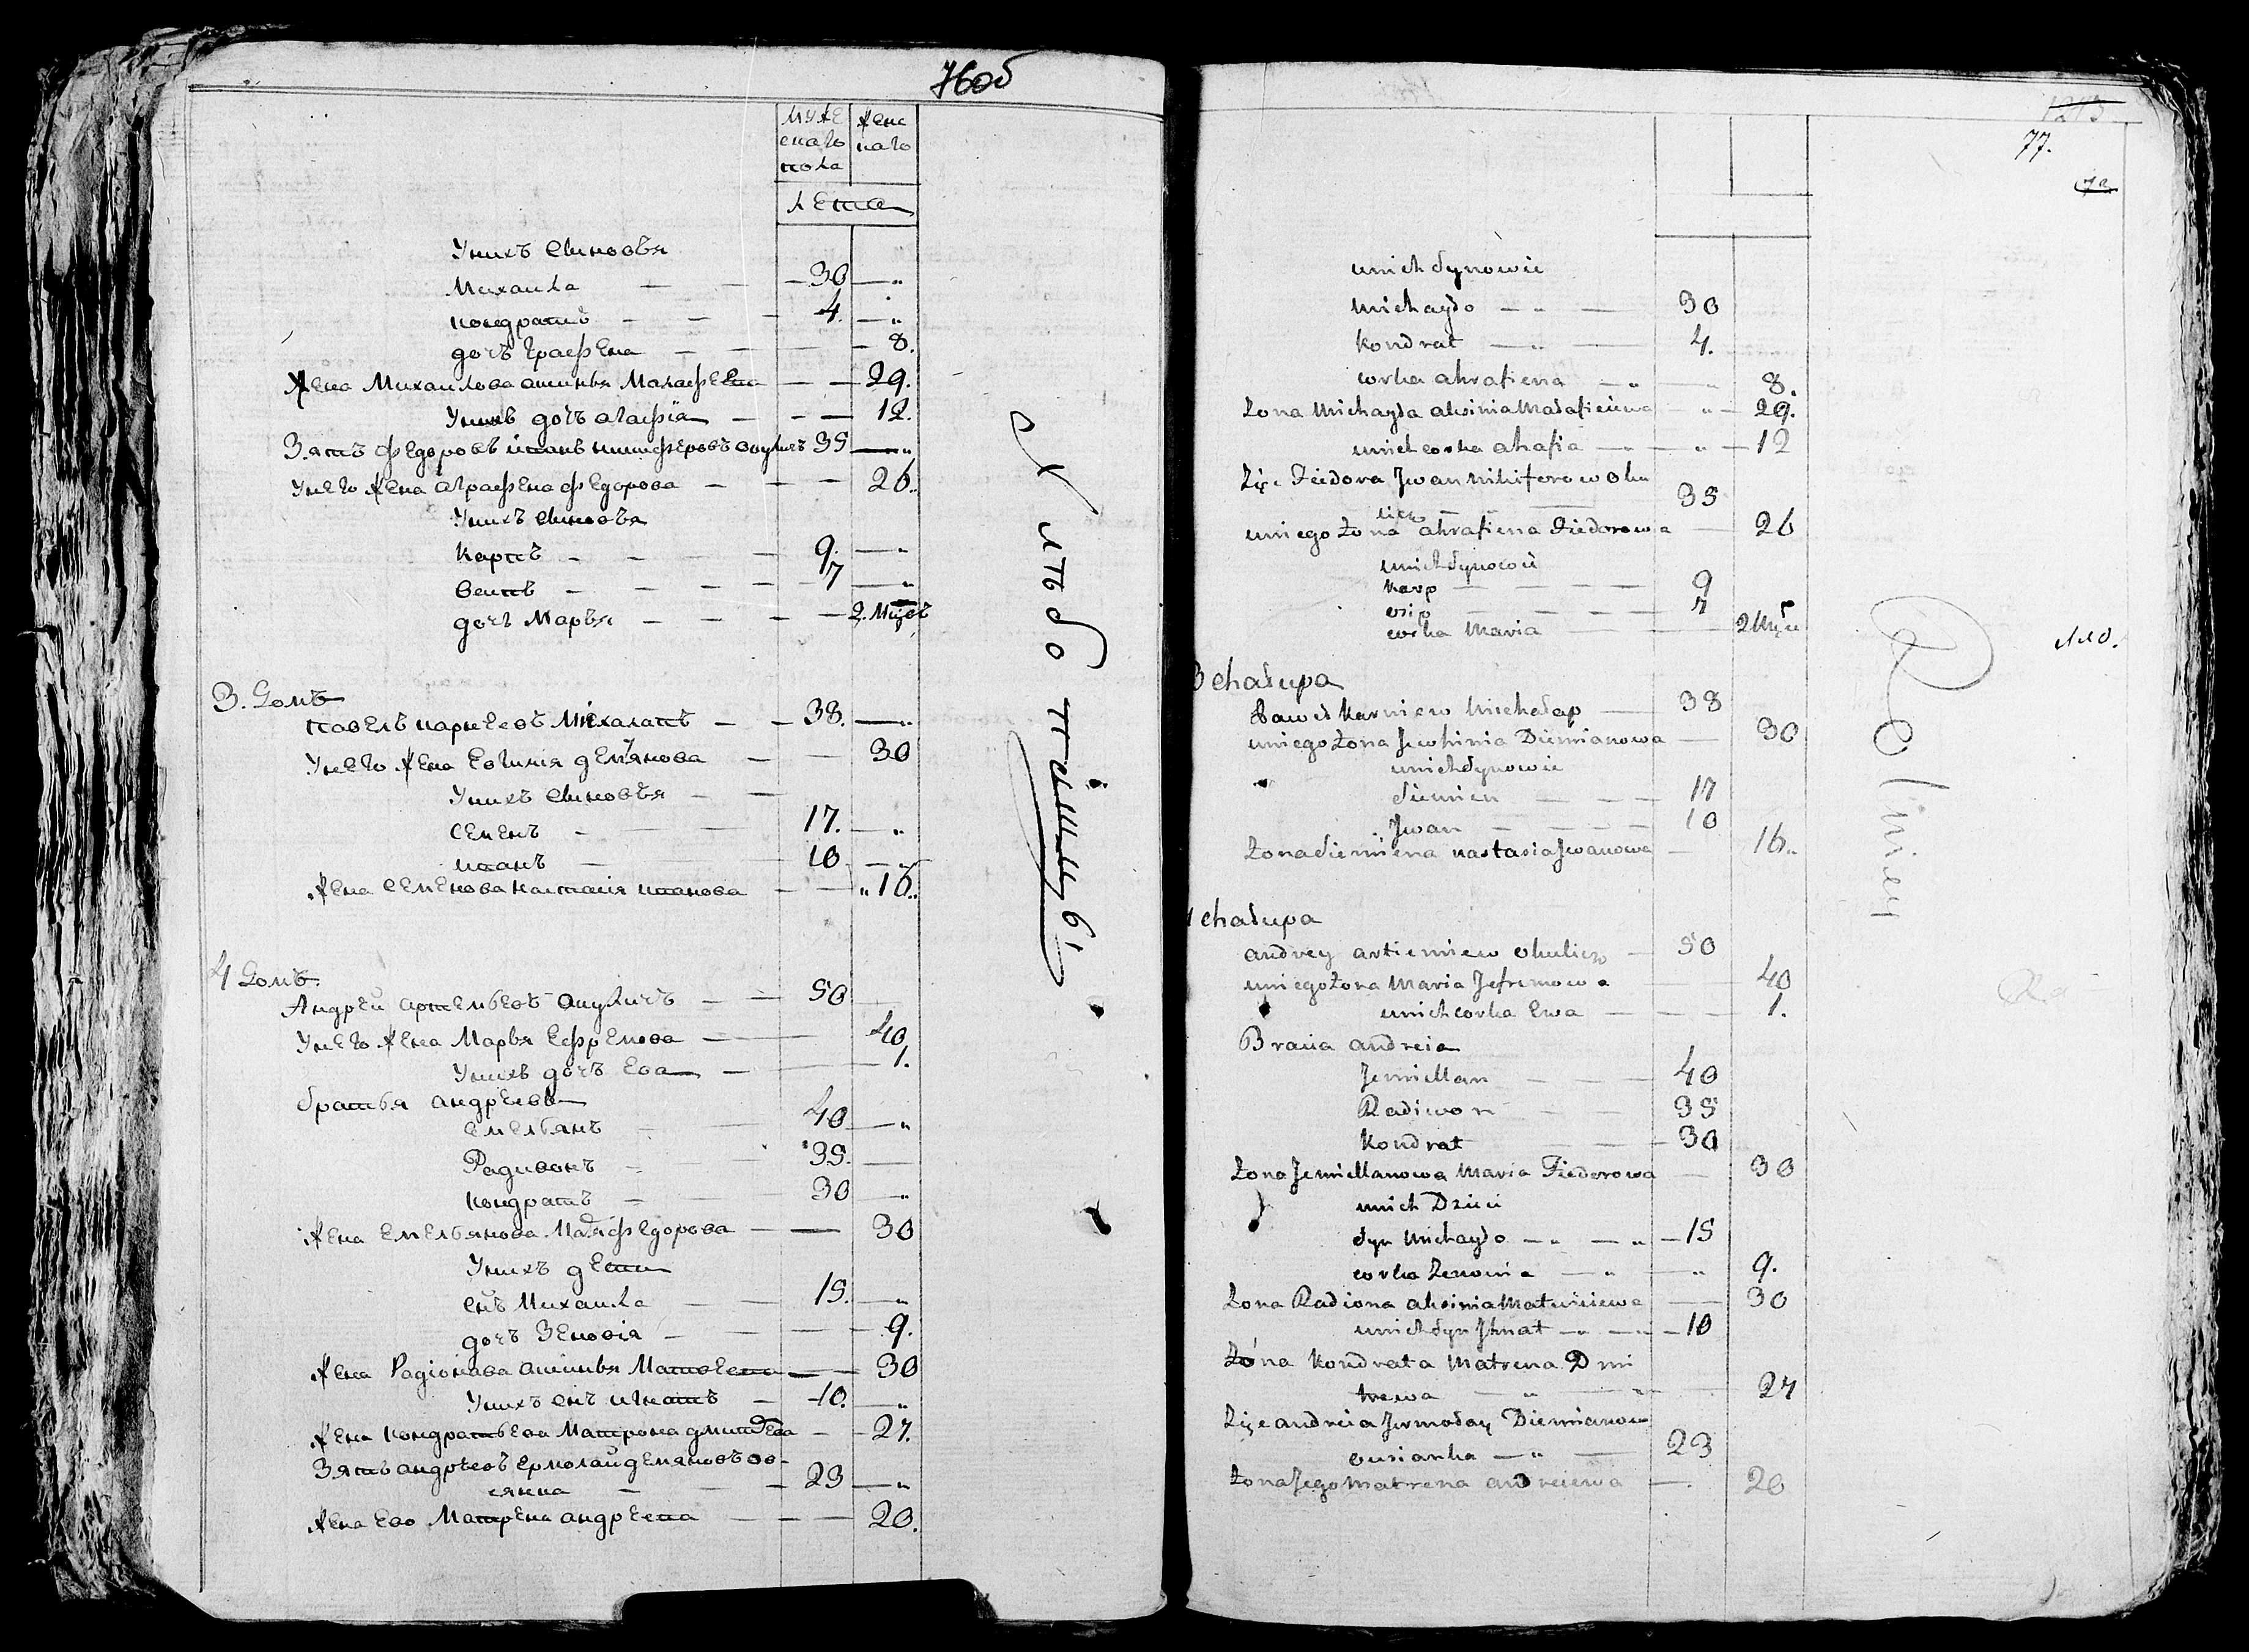 76об
мужескаго пола
женскаго
лета
У нихъ сыновья
Михаила — — 30 — „
кондратъ — — — 4. — „
дочъ Графена — — — 8.
Жена Михаилова аксинья Малафеева — — 29.
У нихъ дочъ агафїа — — — 12.
Зять федоровъ иванъ никифоровъ окуличъ 35 — „
У него жена аграфена федорова — — — 26.
У нихъ сыновья
карпъ — — — 9. — „
осипъ — — — 7 — „
дочъ Марья — — — 2. мцъ
3. домъ
павелъ карнеевъ Михалапъ — — 38. — „
У него жена Евгинїя демъянова — — 30
У нихъ сыновья — —
семенъ — — 17. — „
иванъ — — 10 — „
Жена семенова настасїя иванова — — „ 16.
4 домъ
Андрей артемьевъ окуличъ — — 50
У него жена Марья Ефремова — — 40
У нихъ дочъ Ева — — 1.
братья андреевы
емельянъ — — 40 — „
Радивонъ — — 35. —
кондратъ — — 30 — „
Жена емельянова Марья федорова — — 30
У нихъ дети
снъ Михаила — — 15. — „
дочъ Зеновїя — — — 9.
Жена Радїонова аксинья Матвеева — 30
У нихъ снъ игнатъ — 10. „
Жена кондратьева Матрона дмитрева — — 27.
Зять андрѣевъ ермолай демяновъ ов-
сянка — — — 23 — „
Жена ево Матрена андреева — — — 20.
77.
unich synowie
Michayło — „ — 30
Kondrat — „ — 4.
corka ahrafiena — „ — „ 8.
Żona Michayła aksinia Małafieiewa — „ — 29.
unich corka ahafia — „ — „ — 12
Zięć Fiedora Jwan Nikiforow oku
licz — — 35
uniego Żona ahrafiena Fiedorowa — 26
unich synowie
Karp — — — 9
osip — — — 7
corka Maria — — 2 Mięs
3 chałupa
Paweł Karniew Michałap — 38
uniego Żona Jewhinia Diemianowa — 30
unich synowie
Siemien — — 17
Jwan — — 10
Żona Siemiena nastasia Jwanowa — 16.
4 chałupa
andrey artiemiew okulicz — 50
uniego Żona Maria Jefremowa — 40
unich corka Ewa — — — 1.
Bracia andreia
Jemielian — — — 40
Radiwon — — 35
Kondrat — — 30
Żona Jemielianowa Maria Fiedorowa — 30
unich Dzieci
syn Michayło — „ — „ — 15
corka Zenowia — „ — „ 9.
Żona Radiona aksinia Matwieiewa — 30
unich syn Jhnat — „ — „ — 10
Żona Kondrata Matrena Dmi
trewa — „ — „ 27
Zięć andreia Jermołay Diemianow
owsianka — „ — 23
Żona Jego Matrena andreiewa — 20